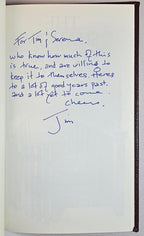 For Tim & Serena,
who know how much of this
is true, and are willing to
keep it to themselves. Here's
to a lot of good years past,
and a lot yet to come.
Cheers,
Jim